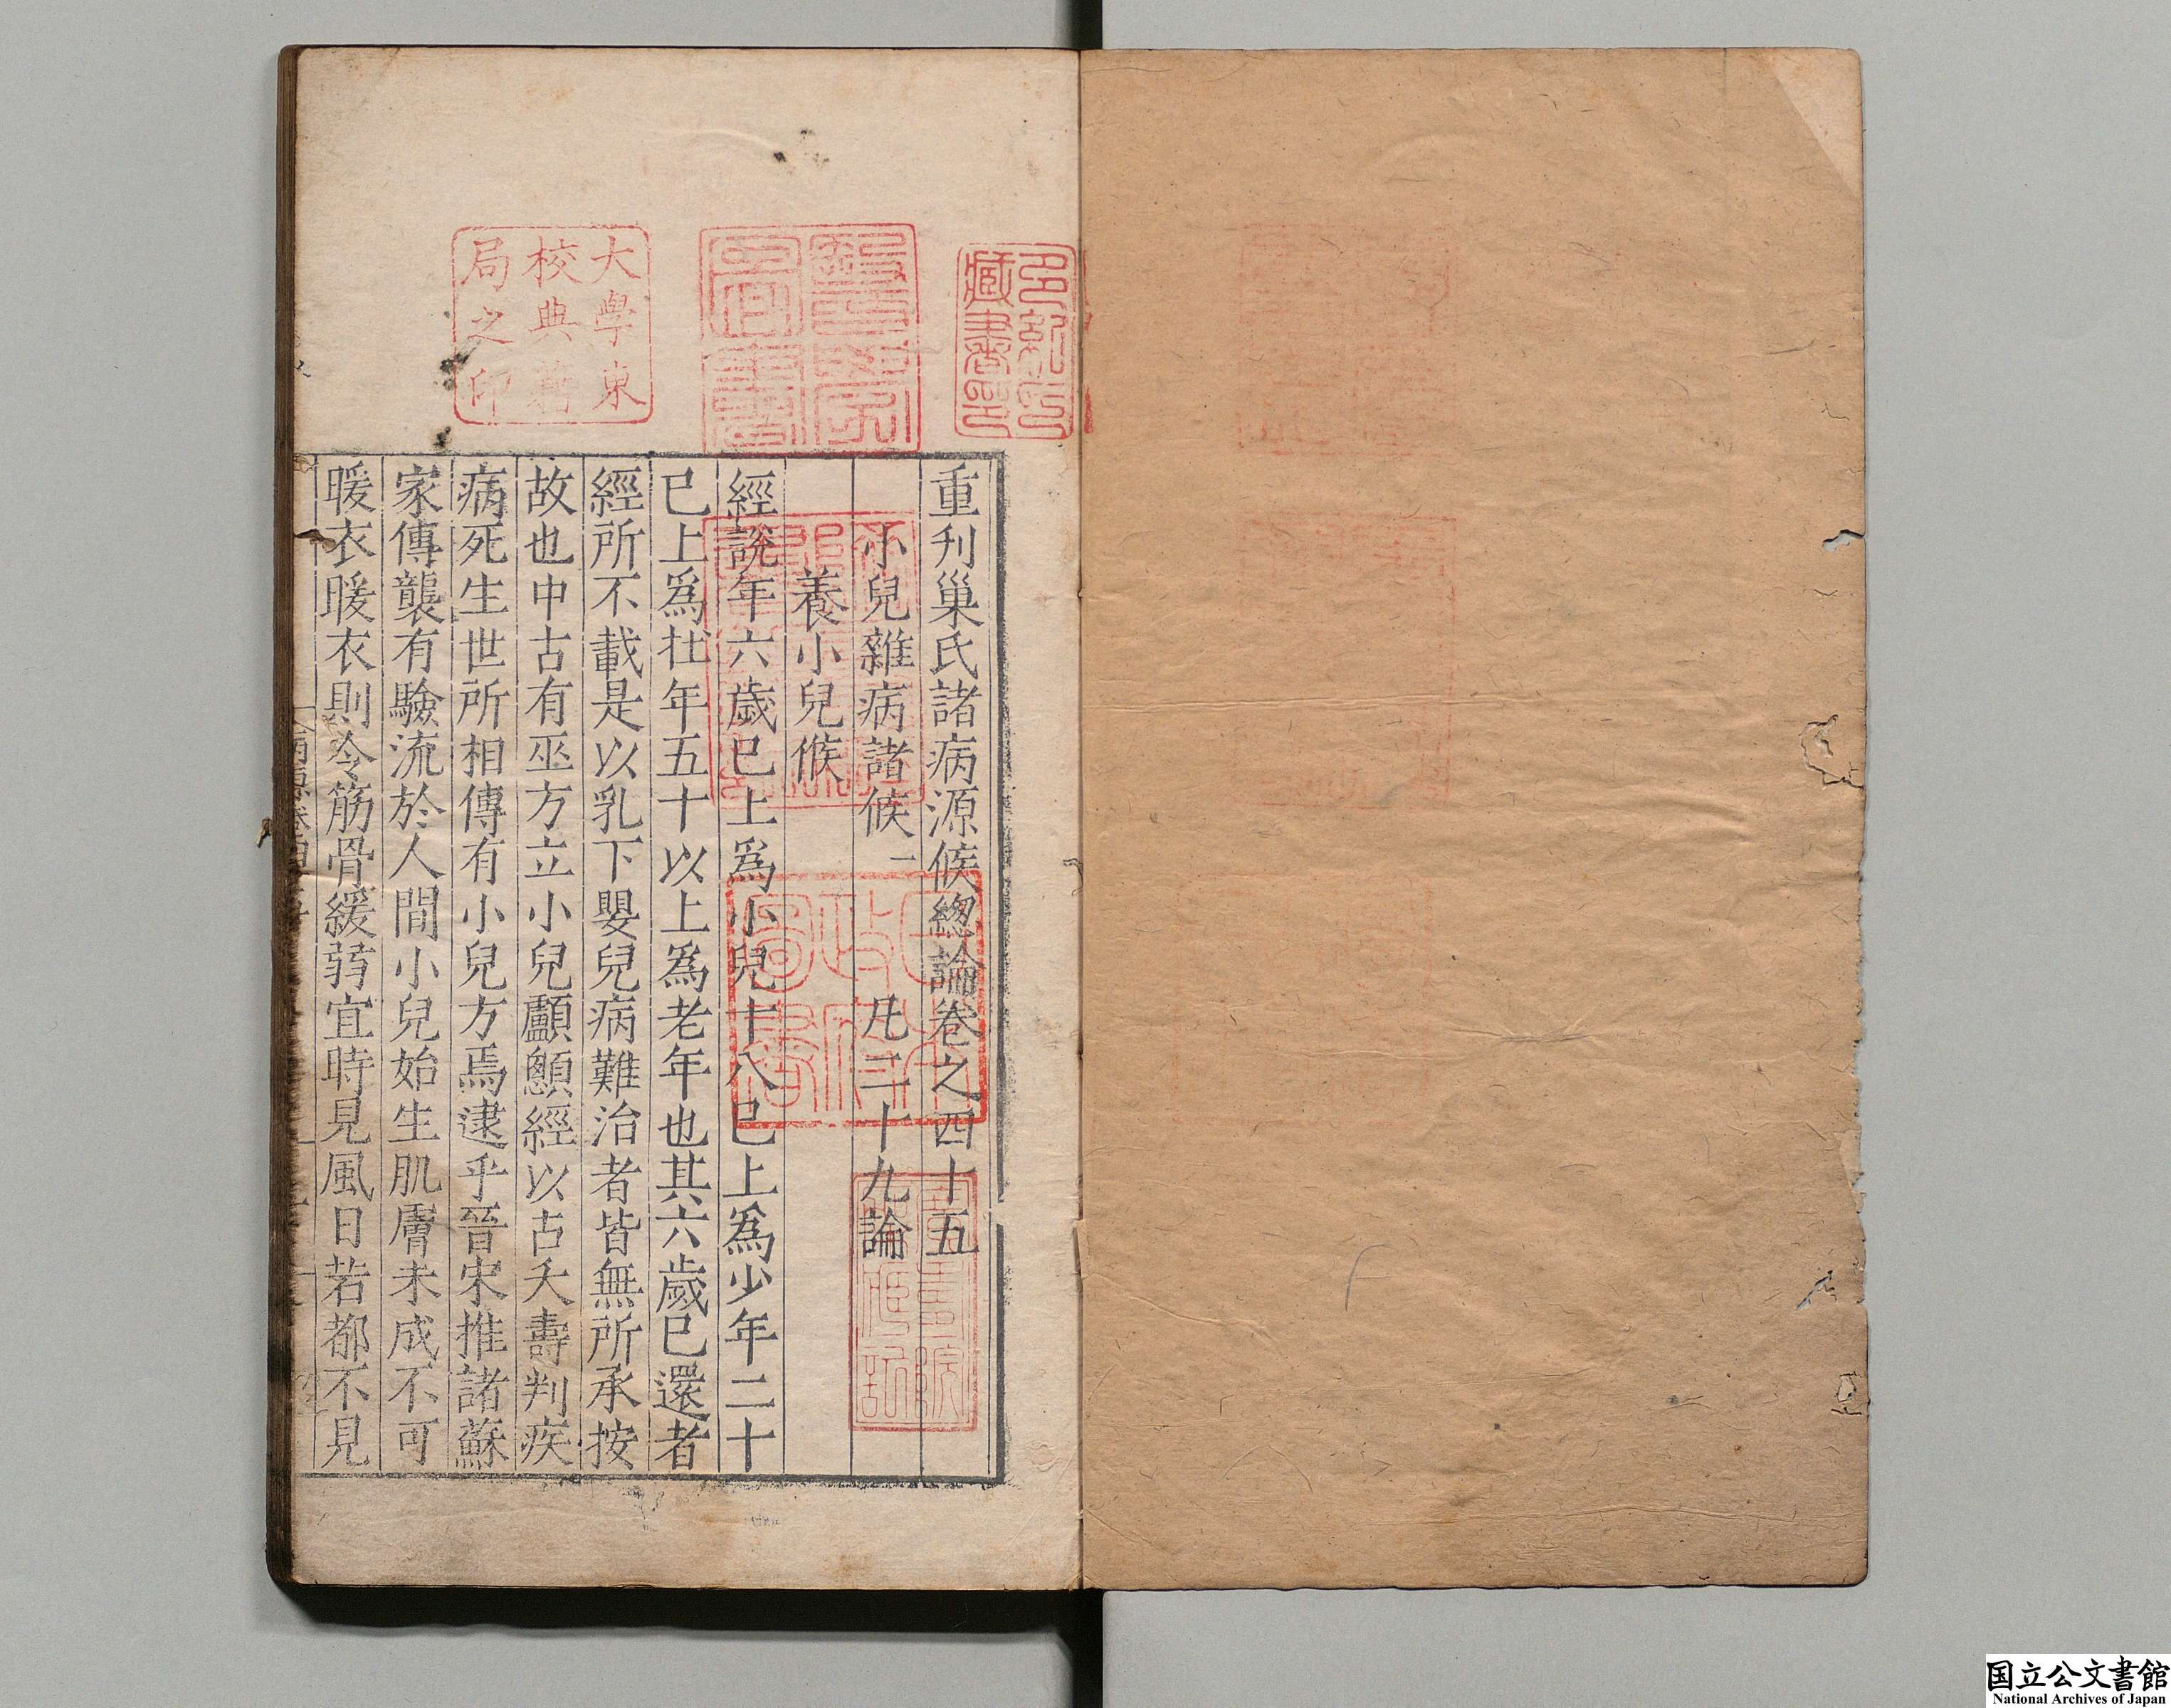 重刋巢氏諸病源候緫論卷之四十五
小兒雜病諸候一 凡二十九論
養小兒候
經說年六歲已上爲小兒十八已上爲少年二十
已上爲壯年五十以上爲老年也其六歲已還者
經所不載是以乳下嬰兒病難治者皆無所承按
故也中古有巫方立小兒顱顖經以占夭壽判疾
病死生世所相傳有小兒方焉逮乎晉宋推諸蘇
家傳襲有驗流於人間小兒始生肌膚未成不可
暖衣暖衣則令筋骨緩弱宜時見風日若都不見
多紀氏
藏書印
大學東
校典籍
局之印
国立公文書館
National Archives of Japan